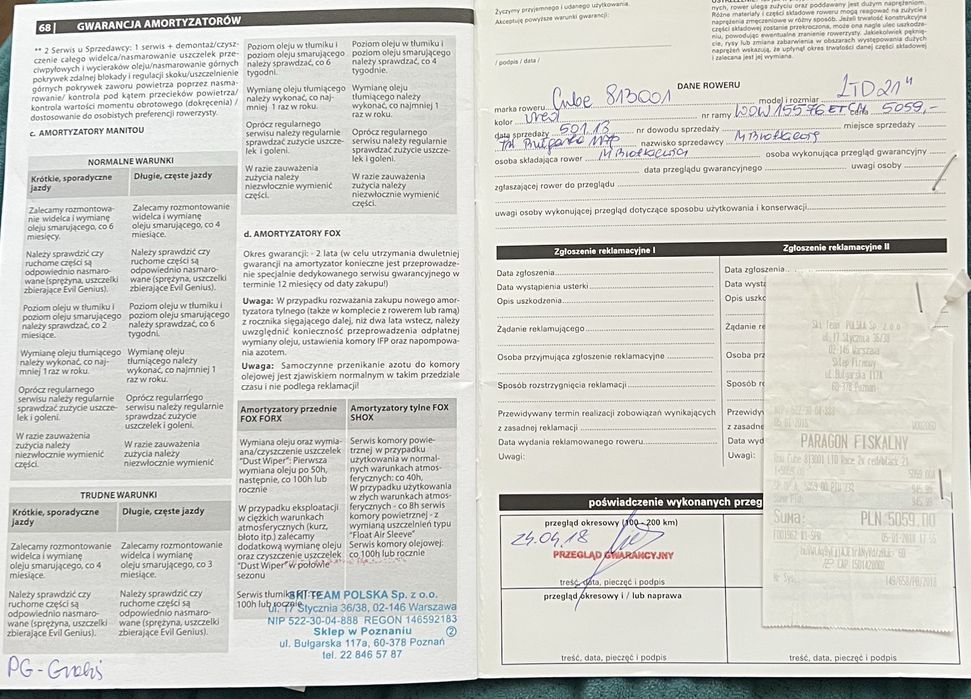 68 | GWARANCJA AMORTYZATORÓW
** 2 Serwis u Sprzedawcy: 1 serwis + demontaż/czysz-
czenie całego widelca/nasmarowanie uszczelek prze-
ciwpyłowych i wycieraków oleju/nasmarowanie górnych
pokrywek zdalnej blokady i regulacji skoku/uszczelnienie
górnych pokrywek zaworu powietrza poprzez nasma-
rowanie/ kontrola pod kątem przecieków powietrza/
kontrola wartości momentu obrotowego (dokręcenia) /
dostosowanie do osobistych preferencji rowerzysty.
c. AMORTYZATORY MANITOU
NORMALNE WARUNKI
Krótkie, sporadyczne
jazdy
Długie, częste jazdy
Zalecamy rozmontowa-
nie widelca i wymianę
oleju smarującego, co 6
miesięcy.
Zalecamy rozmontowanie
widelca i wymianę oleju
smarującego, co 4
miesiące.
Należy sprawdzić czy
ruchome części są
odpowiednio nasmaro-
wane (sprężyna, uszczelki
zbierające Evil Genius).
Należy sprawdzić czy
ruchome części są
odpowiednio nasmaro-
wane (sprężyna, uszczelki
zbierające Evil Genius).
Poziom oleju w tłumiku i
poziom oleju smarującego
należy sprawdzać, co 2
miesiące.
Poziom oleju w tłumiku i
poziom oleju smarującego
należy sprawdzać, co 6
tygodni.
Wymianę oleju tłumiącego
należy wykonać, co naj-
mniej 1 raz w roku.
Wymianę oleju
tłumiącego należy
wykonać, co najmniej 1
raz w roku.
Oprócz regularnego
serwisu należy regularnie
sprawdzać zużycie uszcze-
lek i goleni.
Oprócz regularnego
serwisu należy regularnie
sprawdzać zużycie
uszczelek i goleni.
W razie zauważenia
zużycia należy
niezwłocznie wymienić
części.
W razie zauważenia
zużycia należy
niezwłocznie wymienić
TRUDNE WARUNKI
Krótkie, sporadyczne
jazdy
Długie, częste jazdy
Zalecamy rozmontowanie
widelca i wymianę oleju
smarującego, co 4
miesiące.
Zalecamy rozmontowanie
widelca i wymianę oleju
smarującego, co 3
miesiące.
Należy sprawdzić czy
ruchome części są
odpowiednio nasmaro-
wane (sprężyna, uszczelki
zbierające Evil Genius).
Należy sprawdzić czy
ruchome części są
odpowiednio nasmaro-
wane (sprężyna, uszczelki
zbierające Evil Genius).
PG - Gratis
Poziom oleju w tłumiku i
poziom oleju smarującego
należy sprawdzać, co 6
tygodni.
Poziom oleju w tłumiku i
poziom oleju smarującego
należy sprawdzać, co 4
tygodnie.
Wymianę oleju tłumiącego
należy wykonać, co naj-
mniej 1 raz w roku.
Wymianę oleju
tłumiącego należy
wykonać, co najmniej 1
raz w roku.
Oprócz regularnego
serwisu należy regularnie
sprawdzać zużycie uszcze-
lek i goleni.
Oprócz regularnego
serwisu należy regularnie
sprawdzać zużycie uszcze-
lek i goleni.
W razie zauważenia
zużycia należy
niezwłocznie wymienić
części.
W razie zauważenia
zużycia należy
niezwłocznie wymienić
części.
d. AMORTYZATORY FOX
Okres gwarancji: - 2 lata (w celu utrzymania dwuletniej
gwarancji na amortyzator konieczne jest przeprowadze-
nie specjalnie dedykowanego serwisu gwarancyjnego w
terminie 12 miesięcy od daty zakupu!)
Uwaga: W przypadku rozważania zakupu nowego amor-
tyzatora tylnego (także w komplecie z rowerem lub ramą)
z rocznika sięgającego dalej, niż dwa lata wstecz, należy
uwzględnić konieczność przeprowadzenia odpłatnej
wymiany oleju, ustawienia komory IFP oraz napompowa-
nia azotem.
Uwaga: Samoczynne przenikanie azotu do komory
olejowej jest zjawiskiem normalnym w takim przedziale
czasu i nie podlega reklamacji!
Amortyzatory przednie
FOX FORX
Amortyzatory tylne FOX
SHOX
Wymiana oleju oraz wymia-
na/czyszczenie uszczelek
"Dust Wiper": Pierwsza
wymiana oleju po 50h,
następnie, co 100h lub
rocznie
W przypadku eksploatacji
w ciężkich warunkach
atmosferycznych (kurz,
błoto itp.) zalecamy
dodatkową wymianę oleju
oraz czyszczenie uszczelek
"Dust Wiper" w połowie
sezonu
Serwis komory powie-
trznej w przypadku
użytkowania w nor-
malnych warunkach atmos-
ferycznych: co 40h,
W przypadku użytkowania
w złych warunkach atmos-
ferycznych - co 8h serwis
komory powietrznej - z
wymianą uszczelnień typu
"Float Air Sleeve"
Serwis komory olejowej:
co 100h lub rocznie
100h lub rocznie
SKI TEAM POLSKA Sp. z o.o.
ul. 17 Stycznia 36/38, 02-146 Warszawa
NIP 522-30-04-888 REGON 146592183
Sklep w Poznaniu ②
ul. Bułgarska 117a, 60-378 Poznań
tel. 22 846 57 87
Życzymy przyjemnego i udanego użytkowania.
Akceptuję powyższe warunki gwarancji:
/ podpis / data /
nych, rower ulega zużyciu oraz poddawany jest dużym naprężeniom.
Różne materiały i części składowe roweru mogą reagować na zużycie i
naprężenia zmęczeniowe w różny sposób. Jeżeli trwałość konstrukcyjna
części składowej zostanie przekroczona, może ona nagle ulec uszkodze-
niu, powodując ewentualne zranienie rowerzysty. Jakiekolwiek pęknię-
cie, rysy lub zmiana zabarwienia w obszarach występowania dużych
naprężeń wskazują, że upłynął okres trwałości danej części składowej
i zalecana jest jej wymiana.
DANE ROWERU
marka roweru Cube 813001 model i rozmiar LTD 21"
kolor nr ramy cena 5059,-
data sprzedaży 5.01.18 nr dowodu sprzedaży miejsce sprzedaży
nazwisko sprzedawcy
osoba składająca rower osoba wykonująca przegląd gwarancyjny
data przeglądu gwarancyjnego uwagi osoby
zgłaszającej rower do przeglądu
uwagi osoby wykonującej przegląd dotyczące sposobu użytkowania i konserwacji
Zgłoszenie reklamacyjne I
Zgłoszenie reklamacyjne II
Data zgłoszenia
Data wystąpienia usterki
Opis uszkodzenia
Żądanie reklamującego
Osoba przyjmująca zgłoszenie reklamacyjne
Sposób rozstrzygnięcia reklamacji
Przewidywany termin realizacji zobowiązań wynikających
z zasadnej reklamacji
Data wydania reklamowanego roweru
Uwagi:
Data zgłoszenia
Data wystą
Opis uszko
Żądanie re
Osoba prz
Sposób r
Przewidyw
z zasadne
Data wyd
Uwagi:
Ski Team POLSKA Sp. z o.o.
ul. 17 Stycznia 36/38
02-146 Warszawa
Sklep Firmowy
ul. Bułgarska 117A
60-378 Poznań
NIP 522-30-04-888
05-01-2018
PARAGON FISKALNY
Suma: PLN 5059,00
05-01-2018
Nr Sys.: 149/658/PO/2018
poświadczenie wykonanych przeg
przegląd okresowy (100 - 200 km)
24.04.18
PRZEGLĄD GWARANCYJNY
treść, data, pieczęć i podpis
przegląd okresowy i / lub naprawa
treść, data, pieczęć i podpis
treść, data, pieczęć i podpis